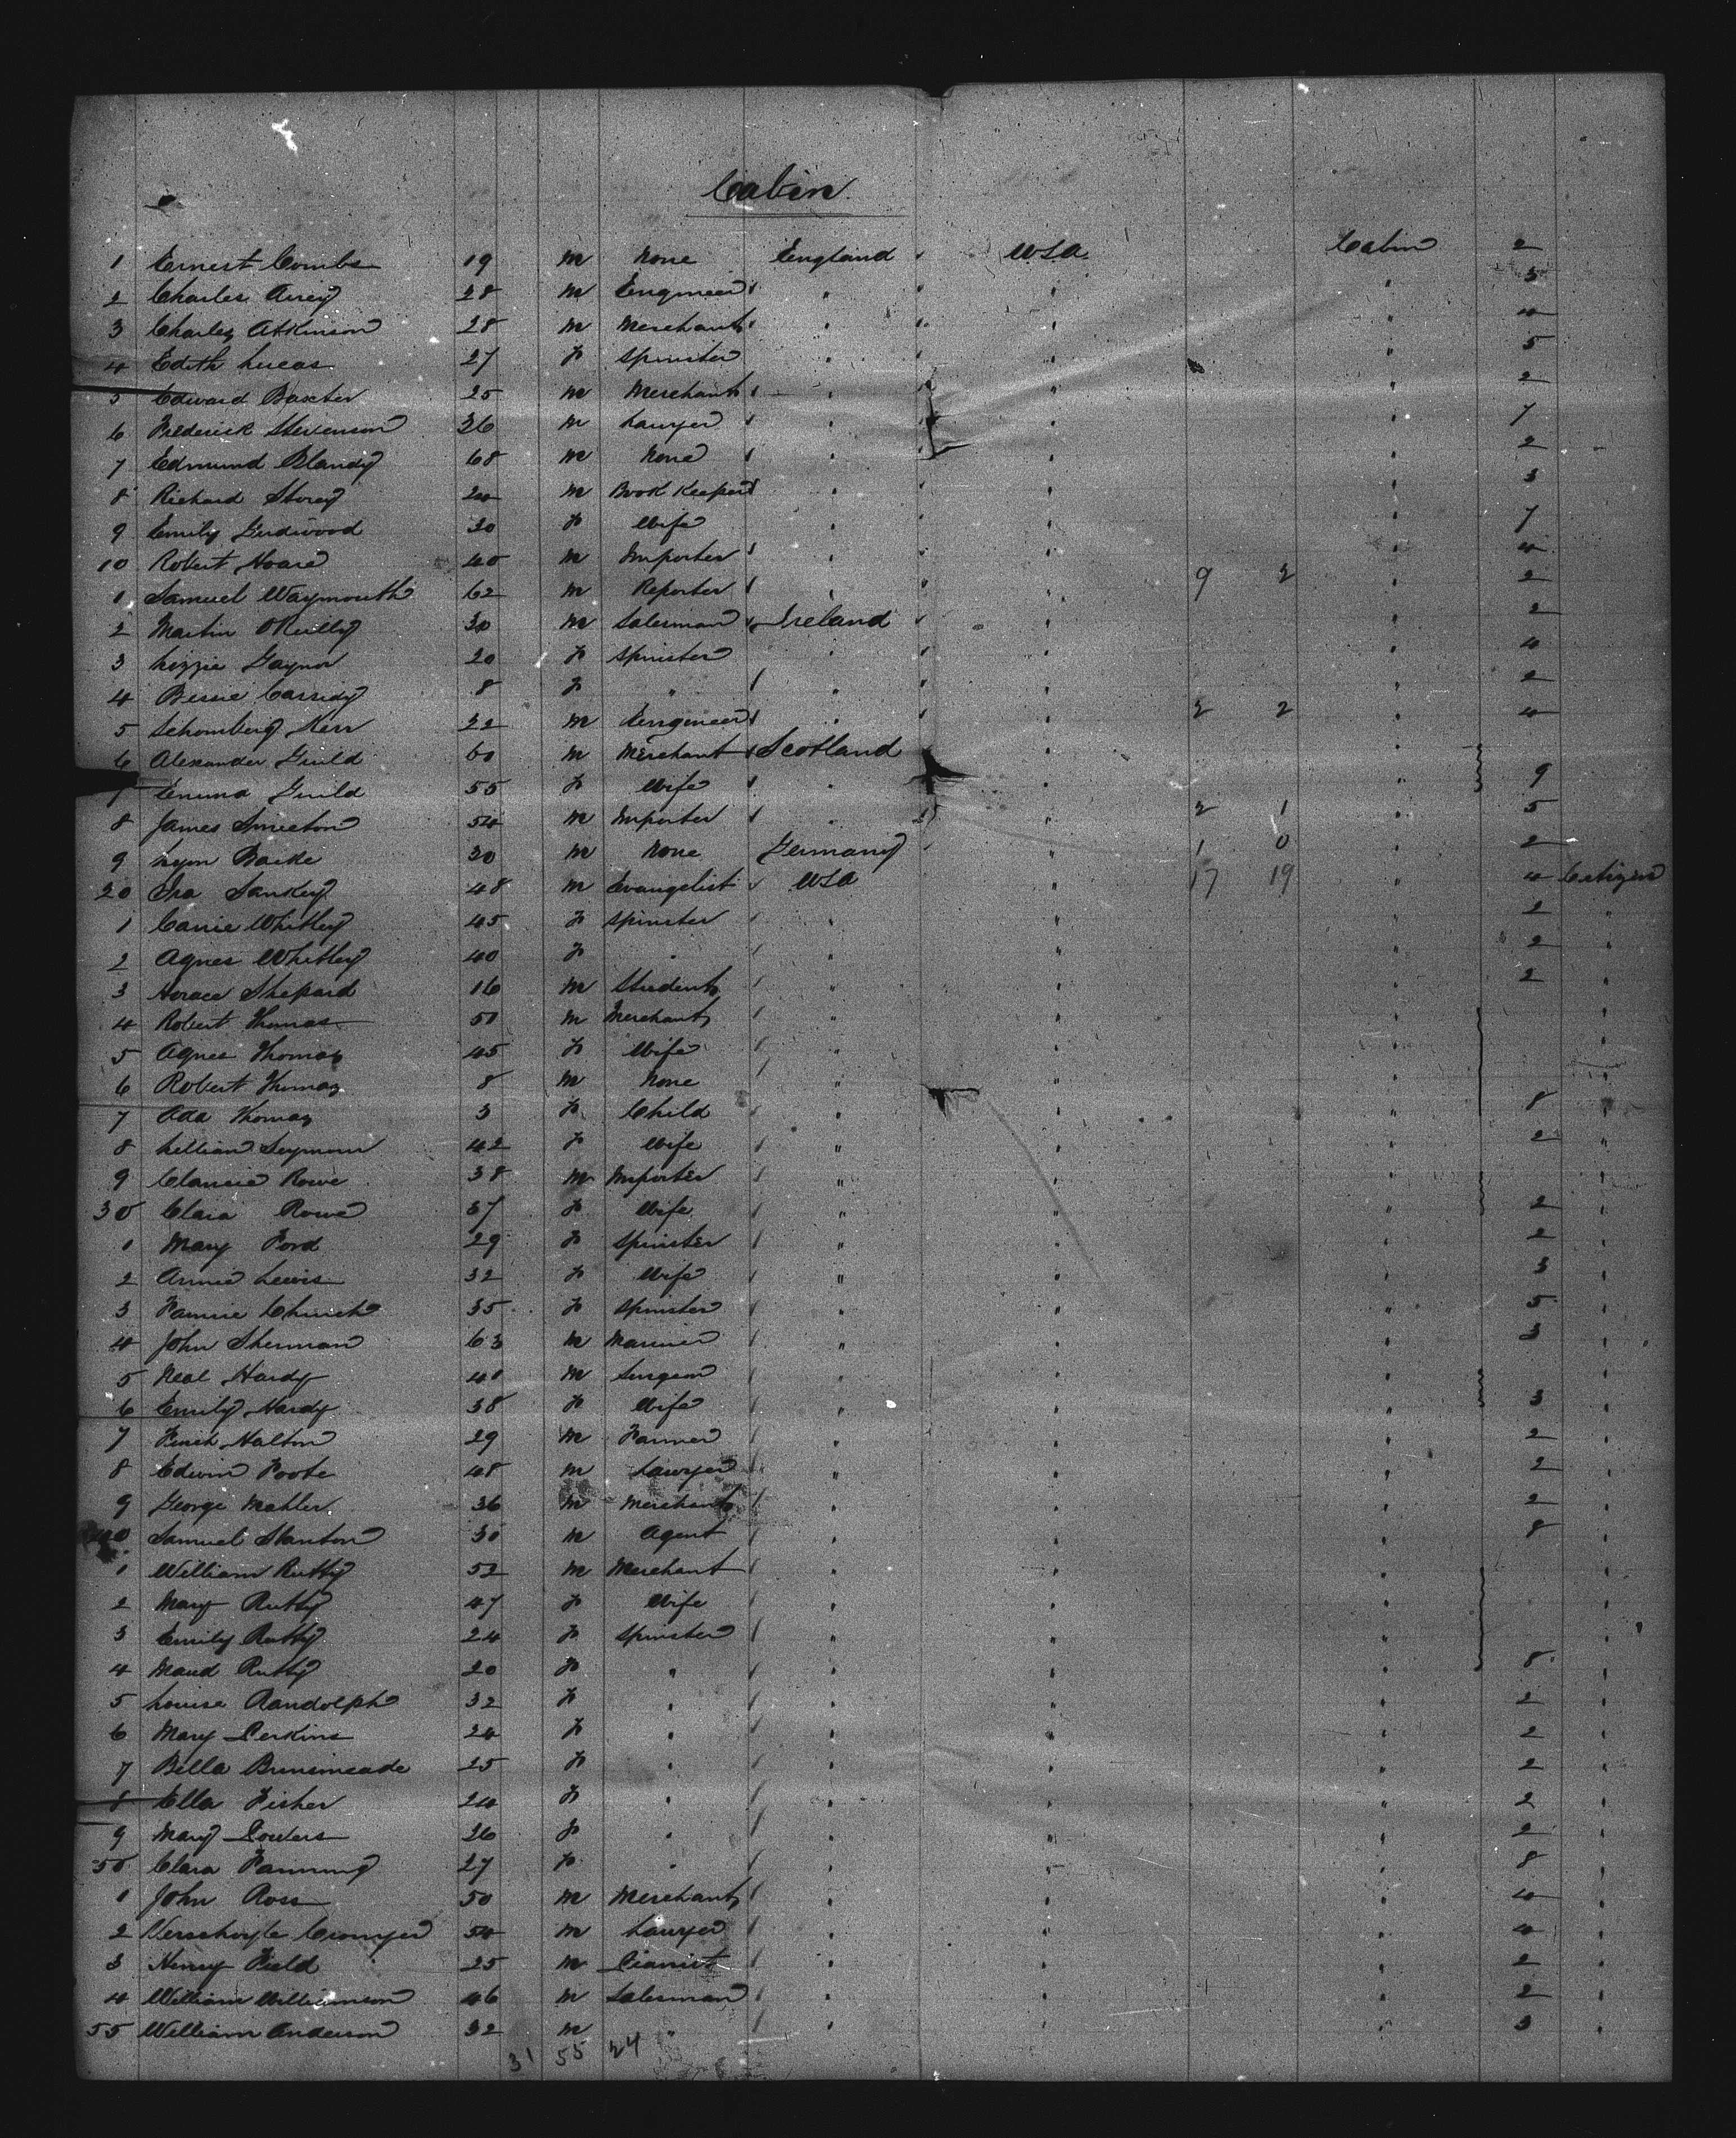 Cabin
1 Ernest Combs 19 m None England USA Cabin 2
2 Charles Airey 28 m Engineer " " " 3
3 Charles Atkinson 28 m Merchant " " " 4
4 Edith Lucas 27 f Spinster " " " 5
5 Edward Baxter 25 m Merchant " " " 2
6 Frederick Stevenson 36 m Lawyer " " " 7
7 Edmund Blandy 68 m None " " " 2
8 Richard Storey 24 m Book Keeper " " " 3
9 Emily Girdwood 30 f Wife " " " 7
10 Robert Hoare 40 m Importer " " " 4
1 Samuel Waymouth 62 m Reporter " " 9 2 " 2
2 Martin O'Reilly 30 m Salesman Ireland " " 2
3 Lizzie Gaynor 20 f Spinster " " " 4
4 Bessie Cassidy 8 f " " " " 2
5 Schomberg Kerr 22 m Engineer " " 2 2 " 4
6 Alexander Guild 60 m Merchant Scotland " "
7 Emma Guild 55 f Wife " " " 9
8 James Smeeton 54 m Importer " " 2 1 " 5
9 Lyon 30 m None Germany " 1 0 " 2
20 Ira Sankey 48 m Evangelist USA " 17 19 " 4 Citizen
1 Carrie Whitley 45 f Spinster " " " 2 "
2 Agnes Whitley 40 f " " " " 2 "
3 Horace Shepard 16 m Student " " " 2 "
4 Robert Thomas 51 m Merchant " " " "
5 Agnes Thomas 45 f Wife " " " "
6 Robert Thomas 8 m None " " " "
7 Ada Thomas 3 f Child " " " 8 "
8 Lillian Seymour 42 f Wife " " " 2 "
9 Rowe 38 m Importer " " " "
30 Clara Rowe 37 f Wife " " " 2 "
1 Mary Ford 29 f Spinster " " " 2 "
2 Annie Lewis 32 f Wife " " " 3 "
3 Fannie Church 35 f Spinster " " " 5 "
4 John Sherman 63 m Mariner " " " 3 "
5 Neal Hardy 40 m Surgeon " " " "
6 Emily Hardy 38 f Wife " " " 3 "
7 Halton 29 m Farmer " " " 2 "
8 Edwin Foote 48 m Lawyer " " " 2 "
9 George Mahler 36 m Merchant " " " 2 "
40 Samuel Stanton 30 m Agent " " " 8 "
1 William Rutty 52 m Merchant " " " "
2 Mary Rutty 47 f Wife " " " "
3 Emily Rutty 24 f Spinster " " " "
4 Maud Rutty 20 f " " " " 8 "
5 Louise Randolph 32 f " " " " 2 "
6 Mary Perkins 24 f " " " " 2 "
7 Bella 25 f " " " " 2 "
8 Ella Fisher 24 f " " " " 2 "
9 Mary Powers 26 f " " " " 2 "
50 Clara Fanning 27 f " " " " 8 "
1 John Ross 50 m Merchant " " " 4 "
2 Verschoyle 54 m Lawyer " " " 4 "
3 Henry Field 25 m Pianist " " " 2 "
4 William Williamson 46 m Salesman " " " 2 "
55 William Anderson 32 m " " " " 3 "
31 55 24